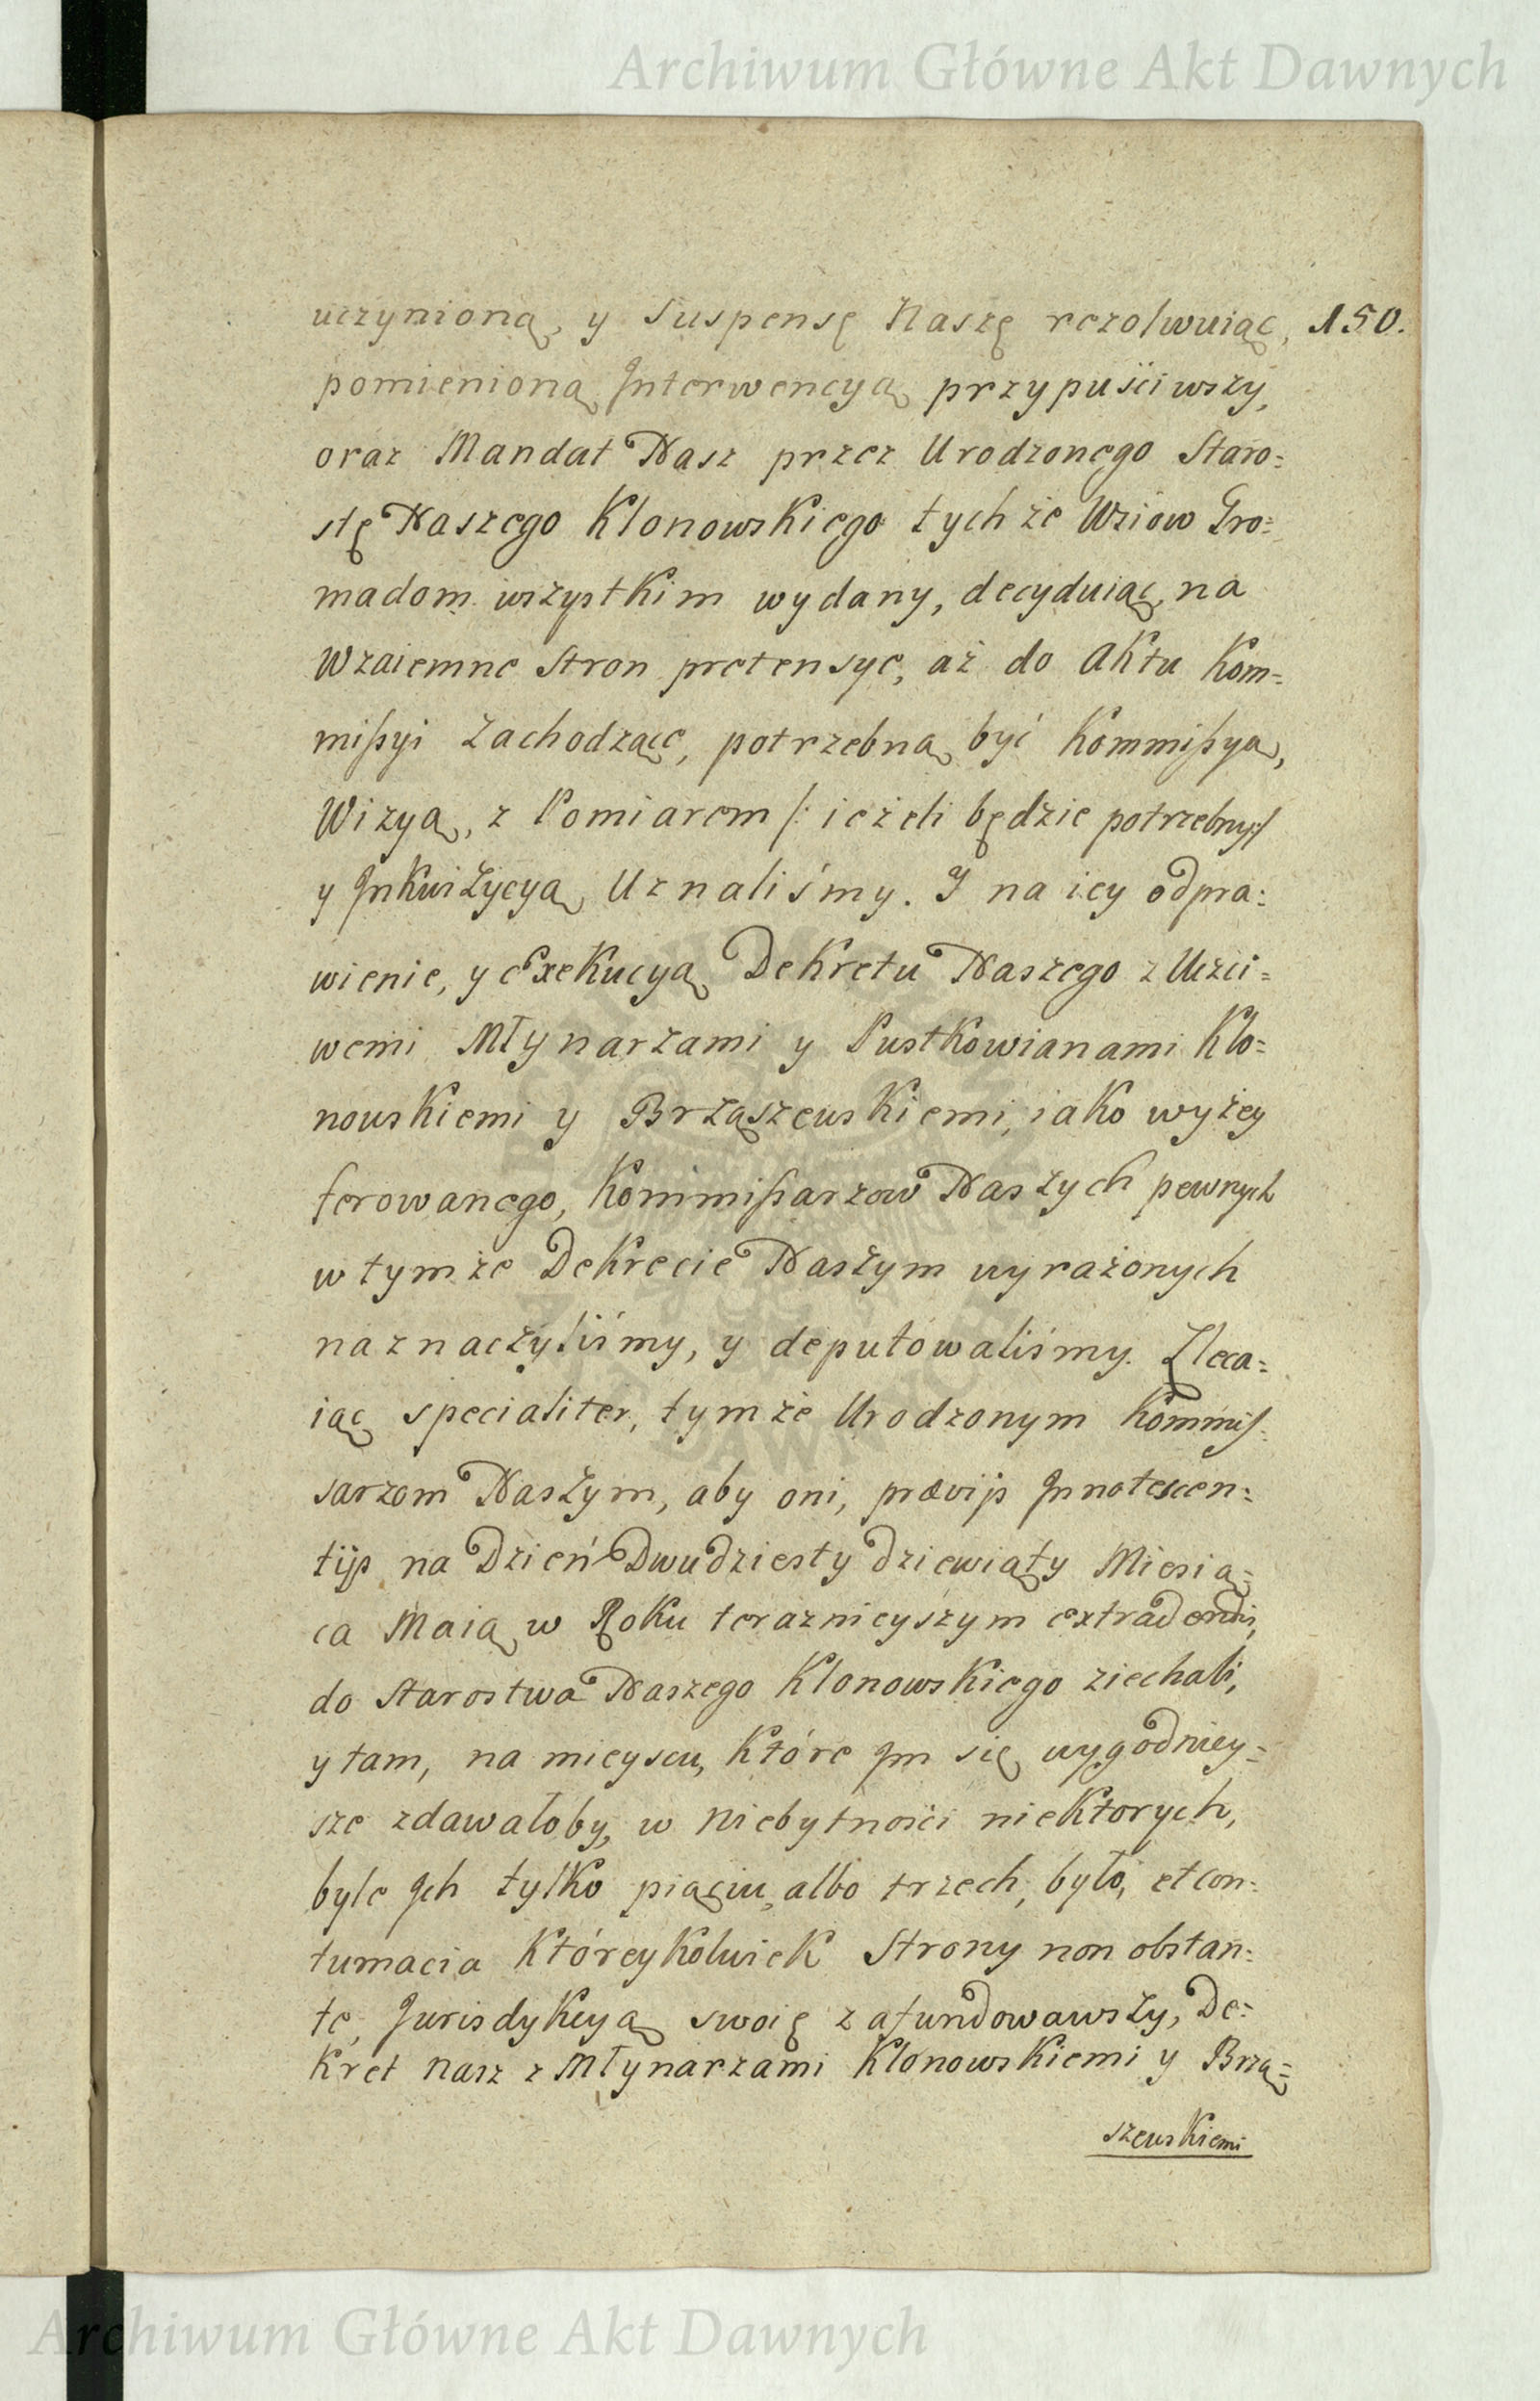 Archiwum Główne Akt Dawnych
uczynioną, y suspensę Naszę rezolwuiąc, 150.
pomienioną Interwencyą przypuściwszy,
oraz Mandat Nasz przez Urodzonego Staro=
stę Naszego Klonowskiego tychże Wsiow Gro=
madom wszystkim wydany, decyduiąc, na
Wzaiemne Stron pretensye, aż do Aktu Kom=
mißyi zachodzące, potrzebną być Kommißyą,
Wizyą, z Pomiarem /: ieżeli będzie potrzebny :/
y Inkwizycyą Uznaliśmy. I na iey odpra=
wienie, y Exekucyą Dekretu Naszego z Uczci=
wemi Młynarzami y Pustkowianami Klo=
nouskiemi y Brząszeuskiemi, iako wyżey
ferowanego, Kommißarzow Naszych pewnych
w tymże Dekrecie Naszym wyrażonych
naznaczyliśmy, y deputowaliśmy. Zleca=
iąc specialiter, tymże Urodzonym Kommis=
sarzom Naszym, aby oni, prævijs Innotescen=
tijs na Dzień Dwudziesty dziewiąty Miesią=
ca Maią w Roku teraznieyszym extradendis,
do Starostwa Naszego Klonowskiego ziechali,
y tam, na mieyscu, które Im się wygodniey=
sze zdawałoby, w niebytności niektorych,
byle Ich tylko piąciu, albo trzech, było, et con=
tumacia któreykolwiek Strony non obstan=
te, Jurisdykcyą swoię zafundowawszy, De=
kret nasz z Młynarzami Klonowskiemi y Brzą=
szeuskiemi
Archiwum Główne Akt Dawnych